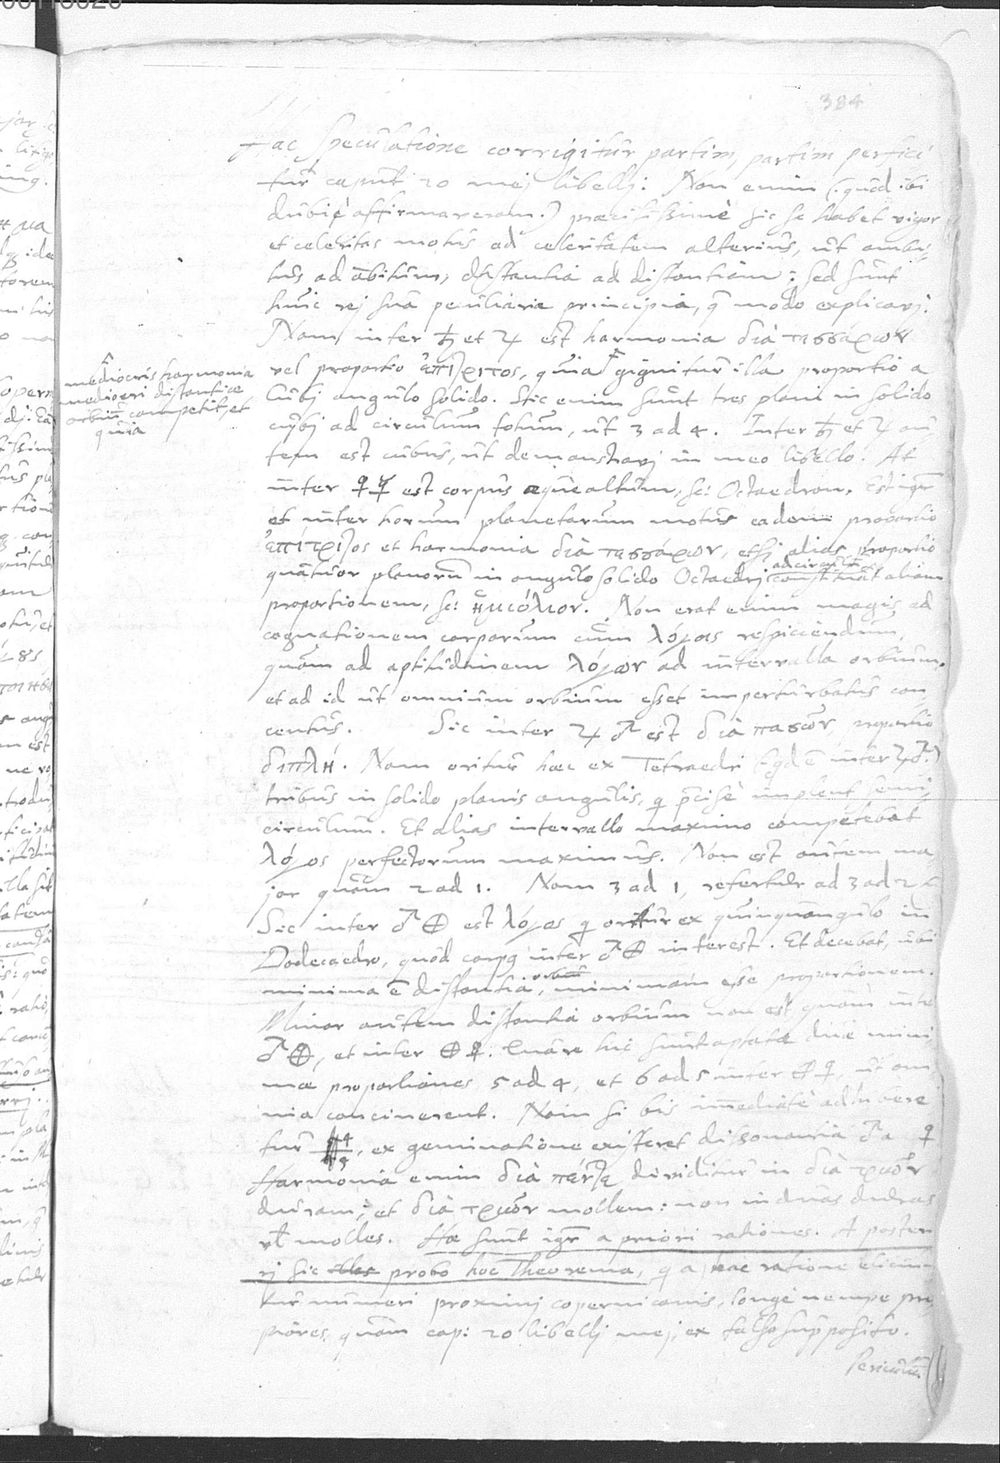 384
Hac speculatione corrigitur partim, partim perfici
tur caput 20 mej libellj: Non enim (quod ibi
dubiè affirmaveram) praecisissimè sic se habet vigor
et celeritas motus ad celeritatem alterius, ut ambi
tus ad ambitum, distantia ad distantiam: sed sunt
huic rej sua peculiaria principia, q modo explicavj.
Nam inter ♄ et ♃ est harmonia διὰ τεσσάρων
vel proportio ἐπίτριτος, quia gignitur illa proportio a
mediocris harmonia
mediocri distantiae
orbiũ competit, et
quia
Cubj angulo solido. Sic enim sunt tres plani in solido
cubj ad circulum totum, ut 3 ad 4. Inter ♄ et ♃ au
tem est cubus, ut demonstravj in meo libello. At
inter ♀ ☿ est corpus aequealtum, sc: Octaedron. Est igr
et inter horum planetarum motus eadem proportio
ἐπίτριτος et harmonia διὰ τεσσάρων, etsj alias proportio
quatuor planorũ in angulo solido Octaedrj ad circulũ constituat aliam
proportionem, sc: ἡμιόλιον. Non erat enim magis ad
cognationem corporum cum λόγοις respiciendum,
quàm ad aptitudinem λόγων ad intervalla orbium,
et ad id ut omnium orbium esset imperturbatus con
centus. Sic inter ♃ ♂ est διὰ πασῶν, proportio
διπλῆ. Nam oritur haec ex Tetraedri (qd ē inter ♃ ♂)
tribus in solido planis angulis, q pcisè implent semi
circulum. Et alias intervallo maximo competebat
λόγος perfectorum maximus. Non est autem ma
jor quàm 2 ad 1. Nam 3 ad 1, refertur ad 3 ad 2
Sic inter ♂ ⊕ est λόγος q oritur ex quinquangulo in
Dodecaedro, quod corpq inter ♂ ⊕ interest. Et decebat, ubi
minima ē distantia orbium, minimam esse proportionem.
Minor autem distantia orbium non est quàm inter
♂ ⊕, et inter ⊕ ♀. Quare hic sunt aptatae duae mini
mae proportiones 5 ad 4, et 6 ad 5 inter ⊕ ♀, ut om
nia concinerent. Nam si bis immediatè adhibere
tur 4/5, ex geminatione existeret dissonantia ♂ a ♀
Harmonia enim διὰ πέντε dividitur in διὰ τριῶν
duram, et διὰ τριῶν mollem: non in duas duras
vl molles. Hae sunt igr a priori rationes. A poster
rj sic probo hoc Theorema, q a hac ratione eliciun
tur numeri proximj copernicanis, longè nempe pro
piores, quàm cap: 20 libellj mej, ex falso supposito.